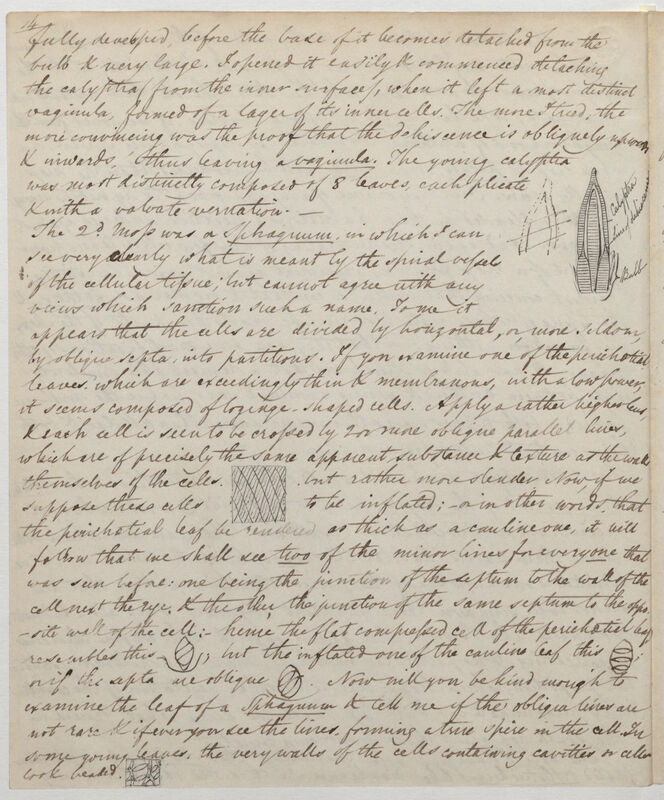 14
fully developed, before the base of it becomes detached from the
bulb & very large. I opened it easily & commenced detaching
the calyptra (from the inner surface), when it left a most distinct
vaginula, formed of a layer of its inner cells. The more I tried, the
more convincing was the proof that the dehiscence is obliquely upwards
& inwards, thus leaving a vaginula. The young calyptra
was most distinctly composed of 8 leaves, each plicate
& with a valvate vernation. —
Calyptra
line of dehiscence
Bulb
The 2d. Moss was a Sphagnum, in which I can
see very clearly what is meant by the spiral vessel
of the cellular tissue; but cannot agree with any
views which sanction such a name. To me it
appears that the cells are divided by horizontal, or more seldom,
by oblique septa, into partitions. If you examine one of the perichætial
leaves which are exceedingly thin & membranous, with a low power,
it seems composed of lozenge-shaped cells. Apply a rather higher lens,
& each cell is seen to be crossed by 2 or more oblique parallel lines,
which are of precisely the same apparent substance & texture as the walls
themselves of the cells. but rather more slender Now, if we
suppose these cells to be inflated; – or in other words, that
the perichætial leaf be rendered as thick as a cauline one, it will
follow that we shall see two of the minor lines for every one that
was seen before: one being the junction of the septum to the wall of the
cell next the eye, & the other, the junction of the same septum to the oppo-
-site wall of the cell: – hence the flat compressed cell of the perichætial leaf
resembles this – ; but the inflated one of the cauline leaf this ;
or if the septa are oblique . Now will you be kind enough to
examine the leaf of a Sphagnum & tell me if the oblique lines are
not rare & if ever you see the lines forming a true spire in the cell. In
some young leaves, the very walls of the cells containing cavities or cells
look beaded.